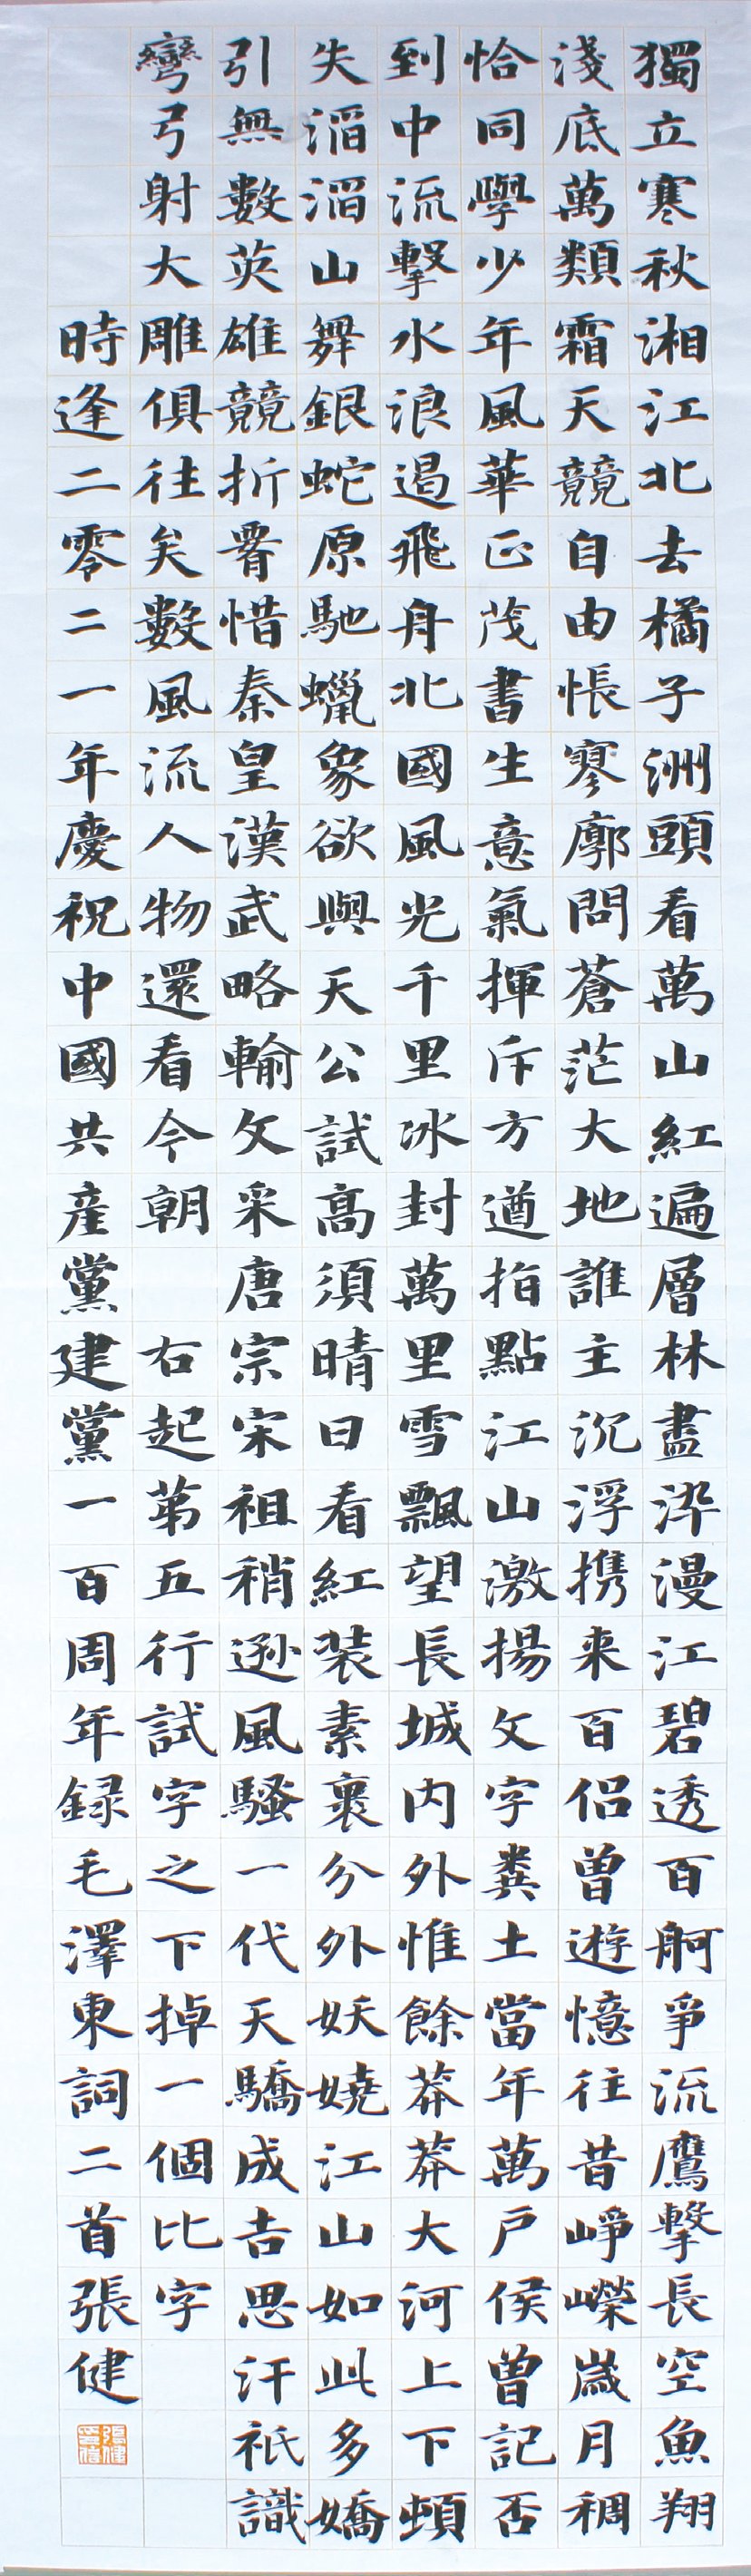 獨立寒秋湘江北去橘子洲頭看萬山紅遍層林盡染漫江碧透百舸爭流鷹擊長空魚翔
淺底萬類霜天競自由悵寥廓問蒼茫大地誰主沉浮携来百侶曾遊憶往昔崢嶸歲月稠
恰同學少年風華正茂書生意氣揮斥方遒指點江山激揚文字糞土當年萬戶侯曾記否
到中流擊水浪遏飛舟北國風光千里冰封萬里雪飄望長城内外惟餘莽莽大河上下頓
失滔滔山舞銀蛇原馳蠟象欲與天公試高須晴日看紅装素裹分外妖嬈江山如此多嬌
引無數英雄競折腰惜秦皇漢武略輸文采唐宗宋祖稍遜風騷一代天驕成吉思汗祇識
彎弓射大雕俱往矣數風流人物還看今朝 右起第五行試字之下掉一個比字
時逢二零二一年慶祝中國共産黨建黨一百周年録毛澤東詞二首張健